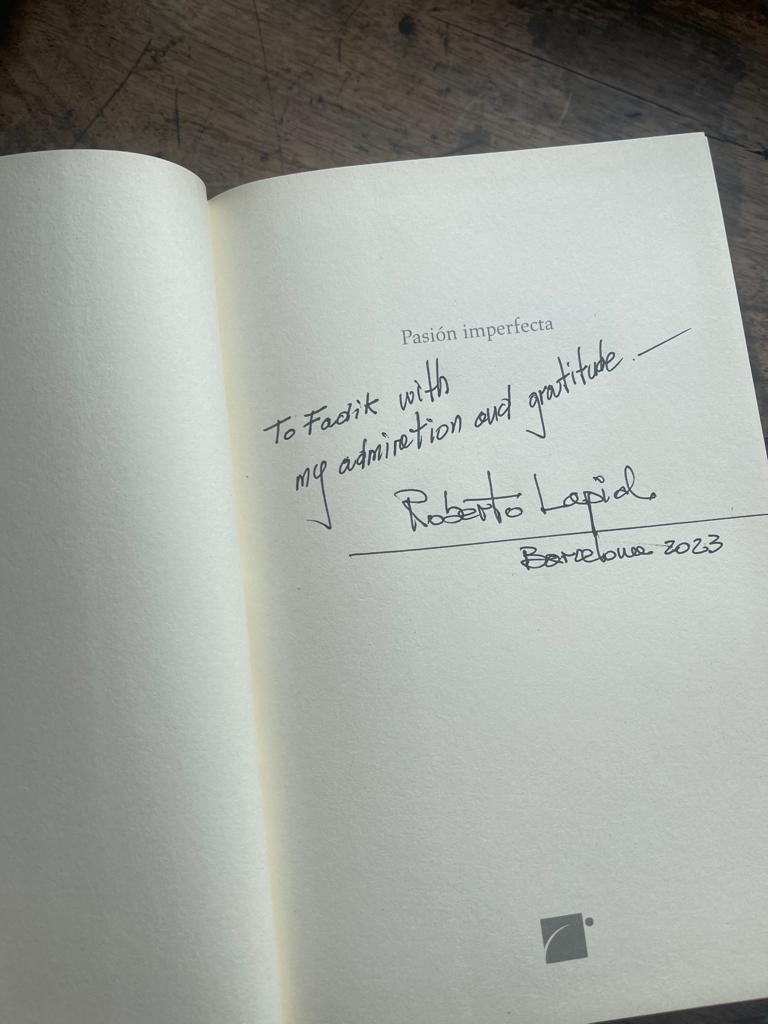 Pasión imperfecta
To Fadik with
my admiration and gratitude.—
Roberto Lapid
Barcelona 2023